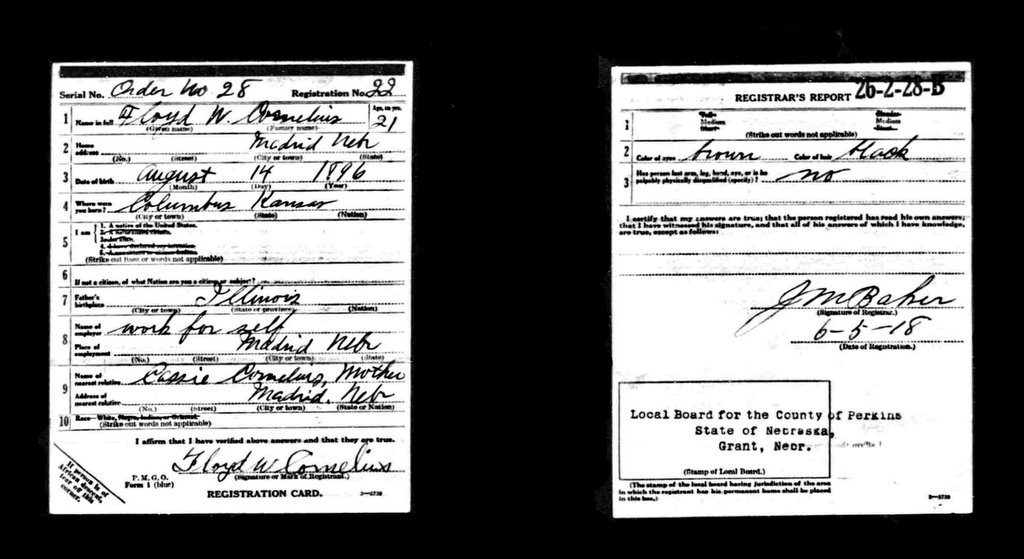 Serial No. Order No 28 Registration No. 22
1 Name in full Floyd W. Cornelius Age, in yrs. 21
(Given name) (Family name)
2 Home address Madrid Nebr
(No.) (Street) (City or town) (State)
3 Date of birth August 14 1896
(Month) (Day) (Year)
4 Where were you born? Columbus Kansas
(City or town) (State) (Nation)
5 I am 1. A native of the United States.
(Strike out lines or words not applicable)
6 If not a citizen, of what Nation are you a citizen or subject?
7 Father's birthplace Illinois
(City or town) (State or province) (Nation)
8 Name of employer work for self
Place of employment Madrid Nebr
(No.) (Street) (City or town) (State)
9 Name of nearest relative Cassie Cornelius, Mother
Address of nearest relative Madrid, Nebr
(No.) (Street) (City or town) (State or Nation)
10 Race—White, Negro, Indian, or Oriental.
(Strike out words not applicable)
I affirm that I have verified above answers and that they are true.
Floyd W Cornelius
(Signature or Mark of Registrant.)
P. M. G. O.
Form 1 (blue)
REGISTRATION CARD.
If person is of
African descent,
tear off this
corner.
REGISTRAR'S REPORT 26-2-28-B
1 Tall Medium Short Slender Medium Stout
(Strike out words not applicable)
2 Color of eyes brown Color of hair black
3 Has person lost arm, leg, hand, eye, or is he
palpably physically disqualified (specify)? no
I certify that my answers are true; that the person registered has read his own answers;
that I have witnessed his signature, and that all of his answers of which I have knowledge,
are true, except as follows:
J M Baker
(Signature of Registrar.)
6-5-18
(Date of Registration.)
Local Board for the County of Perkins
State of Nebraska,
Grant, Nebr.
(Stamp of Local Board.)
(The stamp of the local board having jurisdiction of the area
in which the registrant has his permanent home shall be placed
in this box.)